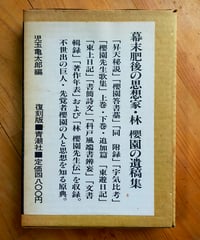 幕末肥後の思想家・林 櫻園の遺稿集
「昇天秘説」「櫻園答書纂」「同 附録」「宇気比考」
「櫻園先生歌集」上巻・下巻・追加篇「東遊日記」
「東上日記」「書簡詩文」「科戸風端書辨妄」「文書
輯録」「著作年表」および「林 櫻園先生伝」を収録。
不世出の巨人・先覚者櫻園の人と思想を知る原典。
復刻版■青潮社■定価四八〇〇円
児玉亀太郎編